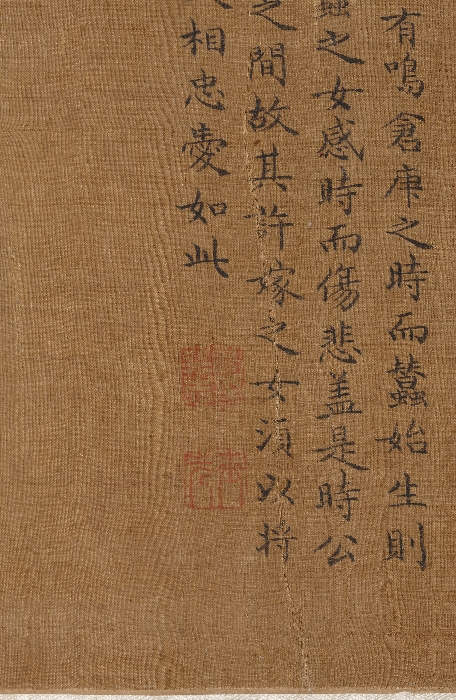 有鳴倉庚之時而蠶始生則
蠶之女感時而傷悲盖是時公
之間故其許嫁之女湏以将
相忠愛如此